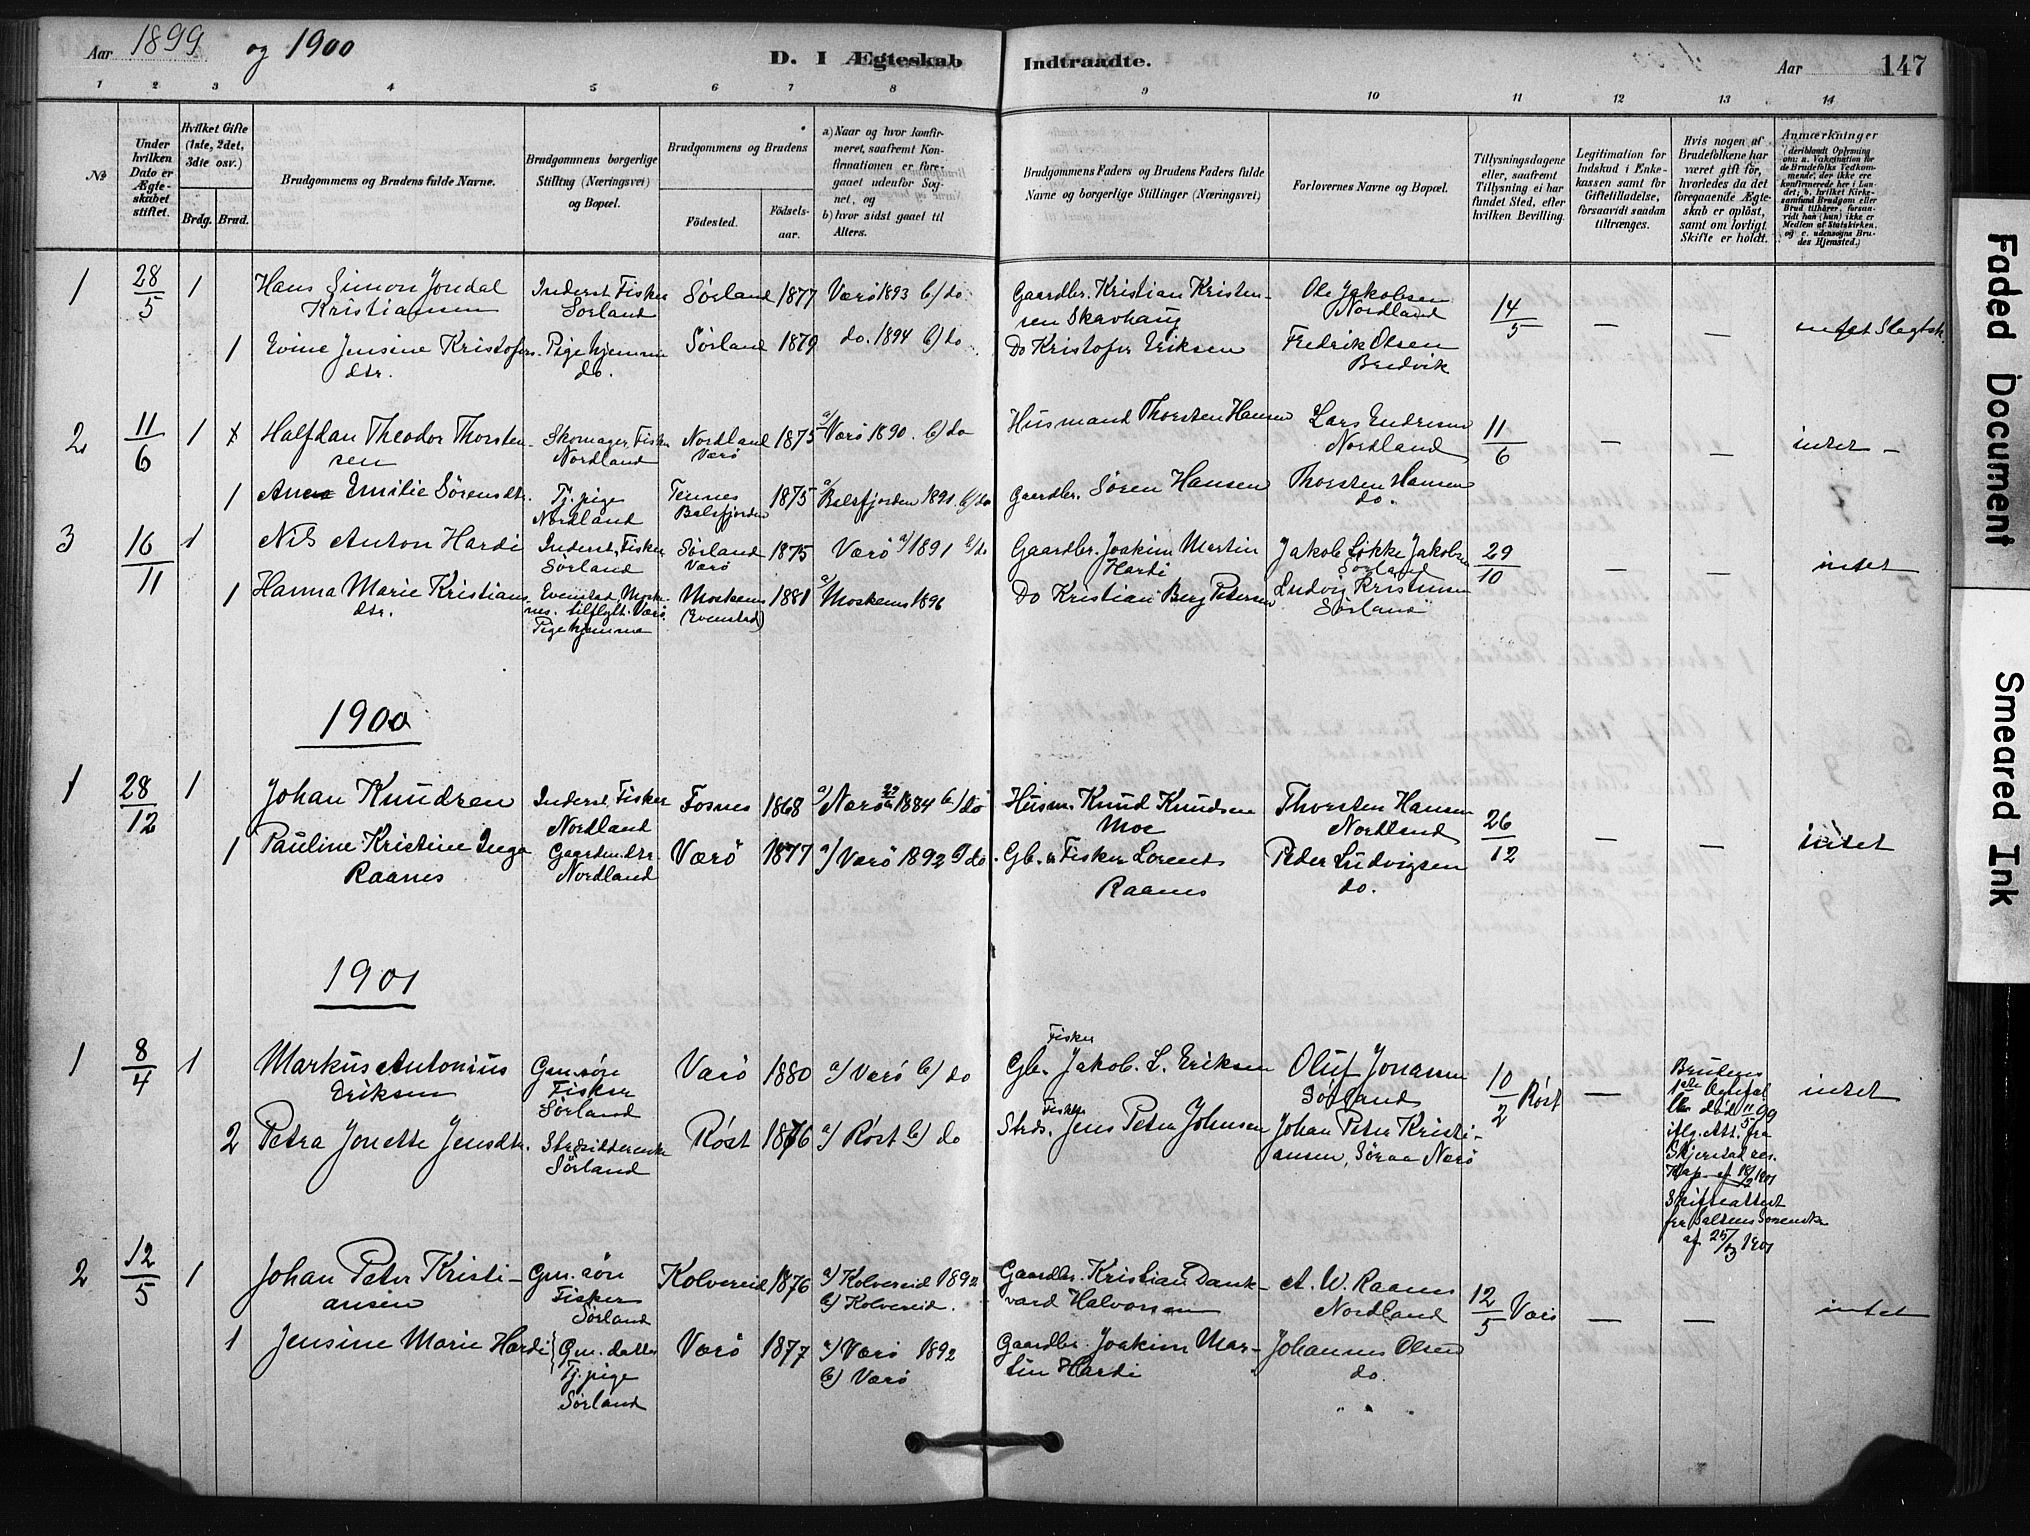 Aar 1899 og 1900
D. I Ægteskab Indtraadte.
Aar 147
1 2 3 4 5 6 7 8 9 10 11 12 13 14
No
Under hvilken Dato er Ægteskabet stiftet.
Hvilket Gifte (1ste, 2det, 3die osv.)
Brdg. Brud.
Brudgommens og Brudens fulde Navne.
Brudgommens borgerlige Stilling (Næringsvei) og Bopæl.
Brudgommens og Brudens
Födested.
Födsels-aar.
a) Naar og hvor konfirmeret, saafremt Konfirmationen er foregaaet udenfor Sognet, og
b) hvor sidst gaaet til Alters.
Brudgommens Faders og Brudens Faders fulde Navne og borgerlige Stillinger (Næringsvei)
Forlovernes Navne og Bopæl.
Tillysningsdagene eller, saafremt Tillysning ei har fundet Sted, efter hvilken Bevilling.
Legitimation for Indskud i Enkekassen samt for Giftetilladelse, forsaavidt saadan tiltrænges.
Hvis nogen af Brudefolkene har været gift för, hvorledes da det foregaaende Ægteskab er oplöst, samt om lovligt Skifte er holdt.
Anmærkninger (deriblandt Oplysning om: a. Vakcination for de Brudefolks Vedkommende, der ikke ere konfirmerede her i Landet; b. hvilket Kirkesamfund Brudgom eller Brud tilhörer, forsaavidt han (hun) ikke er Medlem af Statskirken, og c. udensogns Brudes Hjemsted.)
1 28/5 1 Hans Simon Jondal Kristiansen Inderst, Fisker Sörland Sörland 1877 Værö 1893 b) do Gaardbr. Kristian Kristensen Skarhaug Ole Jakobsen Nordland 14/5 — — intet Slegtsk.
1 Evine Jensine Kristofersdtr. Pige hjemme do. Sörland 1879 do. 1894 b) do Do Kristofer Eriksen Fredrik Olsen Bredvik
2 11/6 1 Halfdan Theodor Thorstensen Skomager, Fisker Nordland Nordland Værö 1875 a) Værö 1890. b) do Husmand Thorsten Hansen Lars Endresen Nordland 11/6 — — intet —
1 Emilie Sörensdtr. Tj.pige Nordland Tennes Balsfjorden 1875 a) Balsfjorden 1891. b) do Gaardbr. Sören Hansen Thorsten Hansen do.
3 16/11 1 Nils Anton Hardi Inderst, Fisker Sörland Sörland Værö 1875 Værö a) 1891 b) do Gaardbr. Joakim Martin Hardi Jakob Lökke Jakobsen Sörland 29/10 — — intet
1 Hanna Marie Kristiansdtr. Evenstad, Mosknes. tilflytt. Værö. Pige hjemme Moskenes (Evenstad) 1881 a) Moskenes 1896 Do Kristian Berg Petersen Ludvig Kristensen Sörland
1900
1 28/12 1 Johan Knudsen Inderst, Fisker Nordland Fosnes 1868 a) Nærö 1884 b) do Husm. Knud Knudsen Moe Thorsten Hansen Nordland 26/12 — — intet
1 Pauline Kristine Inga Raanes Gaardm.dtr. Nordland Værö 1877 a) Værö 1892 b) do. Gb. & Fisker Lorents Raanes Peder Ludvigsen do.
1901
1 8/4 1 Markus Antonius Eriksen Gm.sön Fisker Sörland Værö 1880 a) Værö b) do Gb. Fisker Jakob. L. Eriksen Oluf Jonassen Sørland 10/2 Røst — intet
Brudens 1ste Ægtefælle død 11/5 99 iflg. Att. fra Skjerstad res. Kap. af 18/2 1901 Skifteattest fra Saltens Sorenskr af 25/3 1901
2 Petra Jonette Jensdtr. Sørland Røst 1876 a) Røst b) do Strds. Fisker Jens Peter Johnsen Johan Peter Kristiansen, Søraa Nærö
2 12/5 1 Johan Peter Kristiansen Gm. søn Fisker Sørland Kolvereid 1876 a) Kolvereid 1892 b) Kolvereid. Gaardbr. Kristian Dankvard Halvorsen A. W. Raanes Nordland 12/5 Værö — — intet
1 Jensine Marie Hardi Gm. datter Tj. pige Sørland Værö 1877 a) Værö 1892 b) Værö Gaardbr. Joakim Martin Hardi Johannes Olsen do.
Faded Document
Smeared Ink